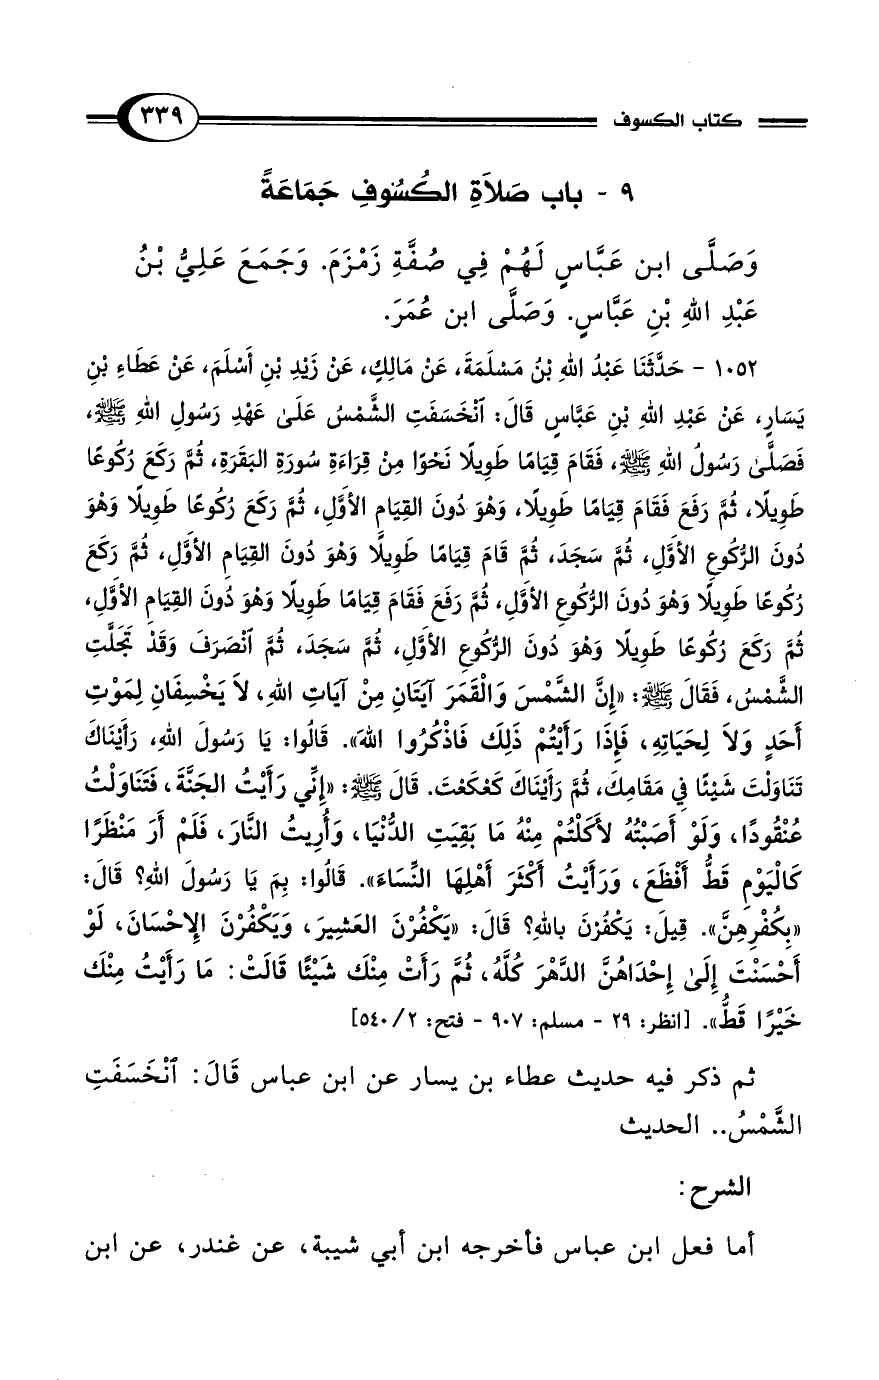 كتاب الكسوف ٣٣٩
٩ - باب صَلاَةِ الكُسُوفِ جَمَاعَةً
وَصَلَّى ابن عَبَّاسٍ لَهُمْ فِي صُفَّةِ زَمْزَمَ. وَجَمَعَ عَلِيُّ بْنُ
عَبْدِ اللهِ بْنِ عَبَّاسٍ. وَصَلَّى ابن عُمَرَ.
١٠٥٢ - حَدَّثَنَا عَبْدُ اللهِ بْنُ مَسْلَمَةَ، عَنْ مَالِكٍ، عَنْ زَيْدِ بْنِ أَسْلَمَ، عَنْ عَطَاءِ بْنِ
يَسَارٍ، عَنْ عَبْدِ اللهِ بْنِ عَبَّاسٍ قَالَ: ٱنْخَسَفَتِ الشَّمْسُ عَلَىٰ عَهْدِ رَسُولِ اللهِ ﷺ،
فَصَلَّىٰ رَسُولُ اللهِ ﷺ، فَقَامَ قِيَامًا طَوِيلًا نَحْوًا مِنْ قِرَاءَةِ سُورَةِ البَقَرَةِ، ثُمَّ رَكَعَ رُكُوعًا
طَوِيلًا، ثُمَّ رَفَعَ فَقَامَ قِيَامًا طَوِيلًا، وَهْوَ دُونَ القِيَامِ الأَوَّلِ، ثُمَّ رَكَعَ رُكُوعًا طَوِيلًا وَهْوَ
دُونَ الرُّكُوعِ الأَوَّلِ، ثُمَّ سَجَدَ، ثُمَّ قَامَ قِيَامًا طَوِيلًا وَهْوَ دُونَ القِيَامِ الأَوَّلِ، ثُمَّ رَكَعَ
رُكُوعًا طَوِيلًا وَهْوَ دُونَ الرُّكُوعِ الأَوَّلِ، ثُمَّ رَفَعَ فَقَامَ قِيَامًا طَوِيلًا وَهْوَ دُونَ القِيَامِ الأَوَّلِ،
ثُمَّ رَكَعَ رُكُوعًا طَوِيلًا وَهْوَ دُونَ الرُّكُوعِ الأَوَّلِ، ثُمَّ سَجَدَ، ثُمَّ ٱنْصَرَفَ وَقَدْ تَجَلَّتِ
الشَّمْسُ، فَقَالَ ﷺ: «إِنَّ الشَّمْسَ وَالْقَمَرَ آيَتَانِ مِنْ آيَاتِ اللهِ، لاَ يَخْسِفَانِ لِمَوْتِ
أَحَدٍ وَلاَ لِحَيَاتِهِ، فَإِذَا رَأَيْتُمْ ذَلِكَ فَاذْكُرُوا اللهَ». قَالُوا: يَا رَسُولَ اللهِ، رَأَيْنَاكَ
تَنَاوَلْتَ شَيْئًا فِي مَقَامِكَ، ثُمَّ رَأَيْنَاكَ كَعْكَعْتَ. قَالَ ﷺ: «إِنِّي رَأَيْتُ الجَنَّةَ، فَتَنَاوَلْتُ
عُنْقُودًا، وَلَوْ أَصَبْتُهُ لأَكَلْتُمْ مِنْهُ مَا بَقِيَتِ الدُّنْيَا، وَأُرِيتُ النَّارَ، فَلَمْ أَرَ مَنْظَرًا
كَالْيَوْمِ قَطُّ أَفْظَعَ، وَرَأَيْتُ أَكْثَرَ أَهْلِهَا النِّسَاءَ». قَالُوا: بِمَ يَا رَسُولَ اللهِ؟ قَالَ:
«بِكُفْرِهِنَّ». قِيلَ: يَكْفُرْنَ بِاللهِ؟ قَالَ: «يَكْفُرْنَ العَشِيرَ، وَيَكْفُرْنَ الإِحْسَانَ، لَوْ
أَحْسَنْتَ إِلَىٰ إِحْدَاهُنَّ الدَّهْرَ كُلَّهُ، ثُمَّ رَأَتْ مِنْكَ شَيْئًا قَالَتْ: مَا رَأَيْتُ مِنْكَ
خَيْرًا قَطُّ». [انظر: ٢٩ - مسلم: ٩٠٧ - فتح: ٥٤٠/٢]
ثم ذكر فيه حديث عطاء بن يسار عن ابن عباس قَالَ: ٱنْخَسَفَتِ
الشَّمْسُ.. الحديث
الشرح:
أما فعل ابن عباس فأخرجه ابن أبي شيبة، عن غندر، عن ابن